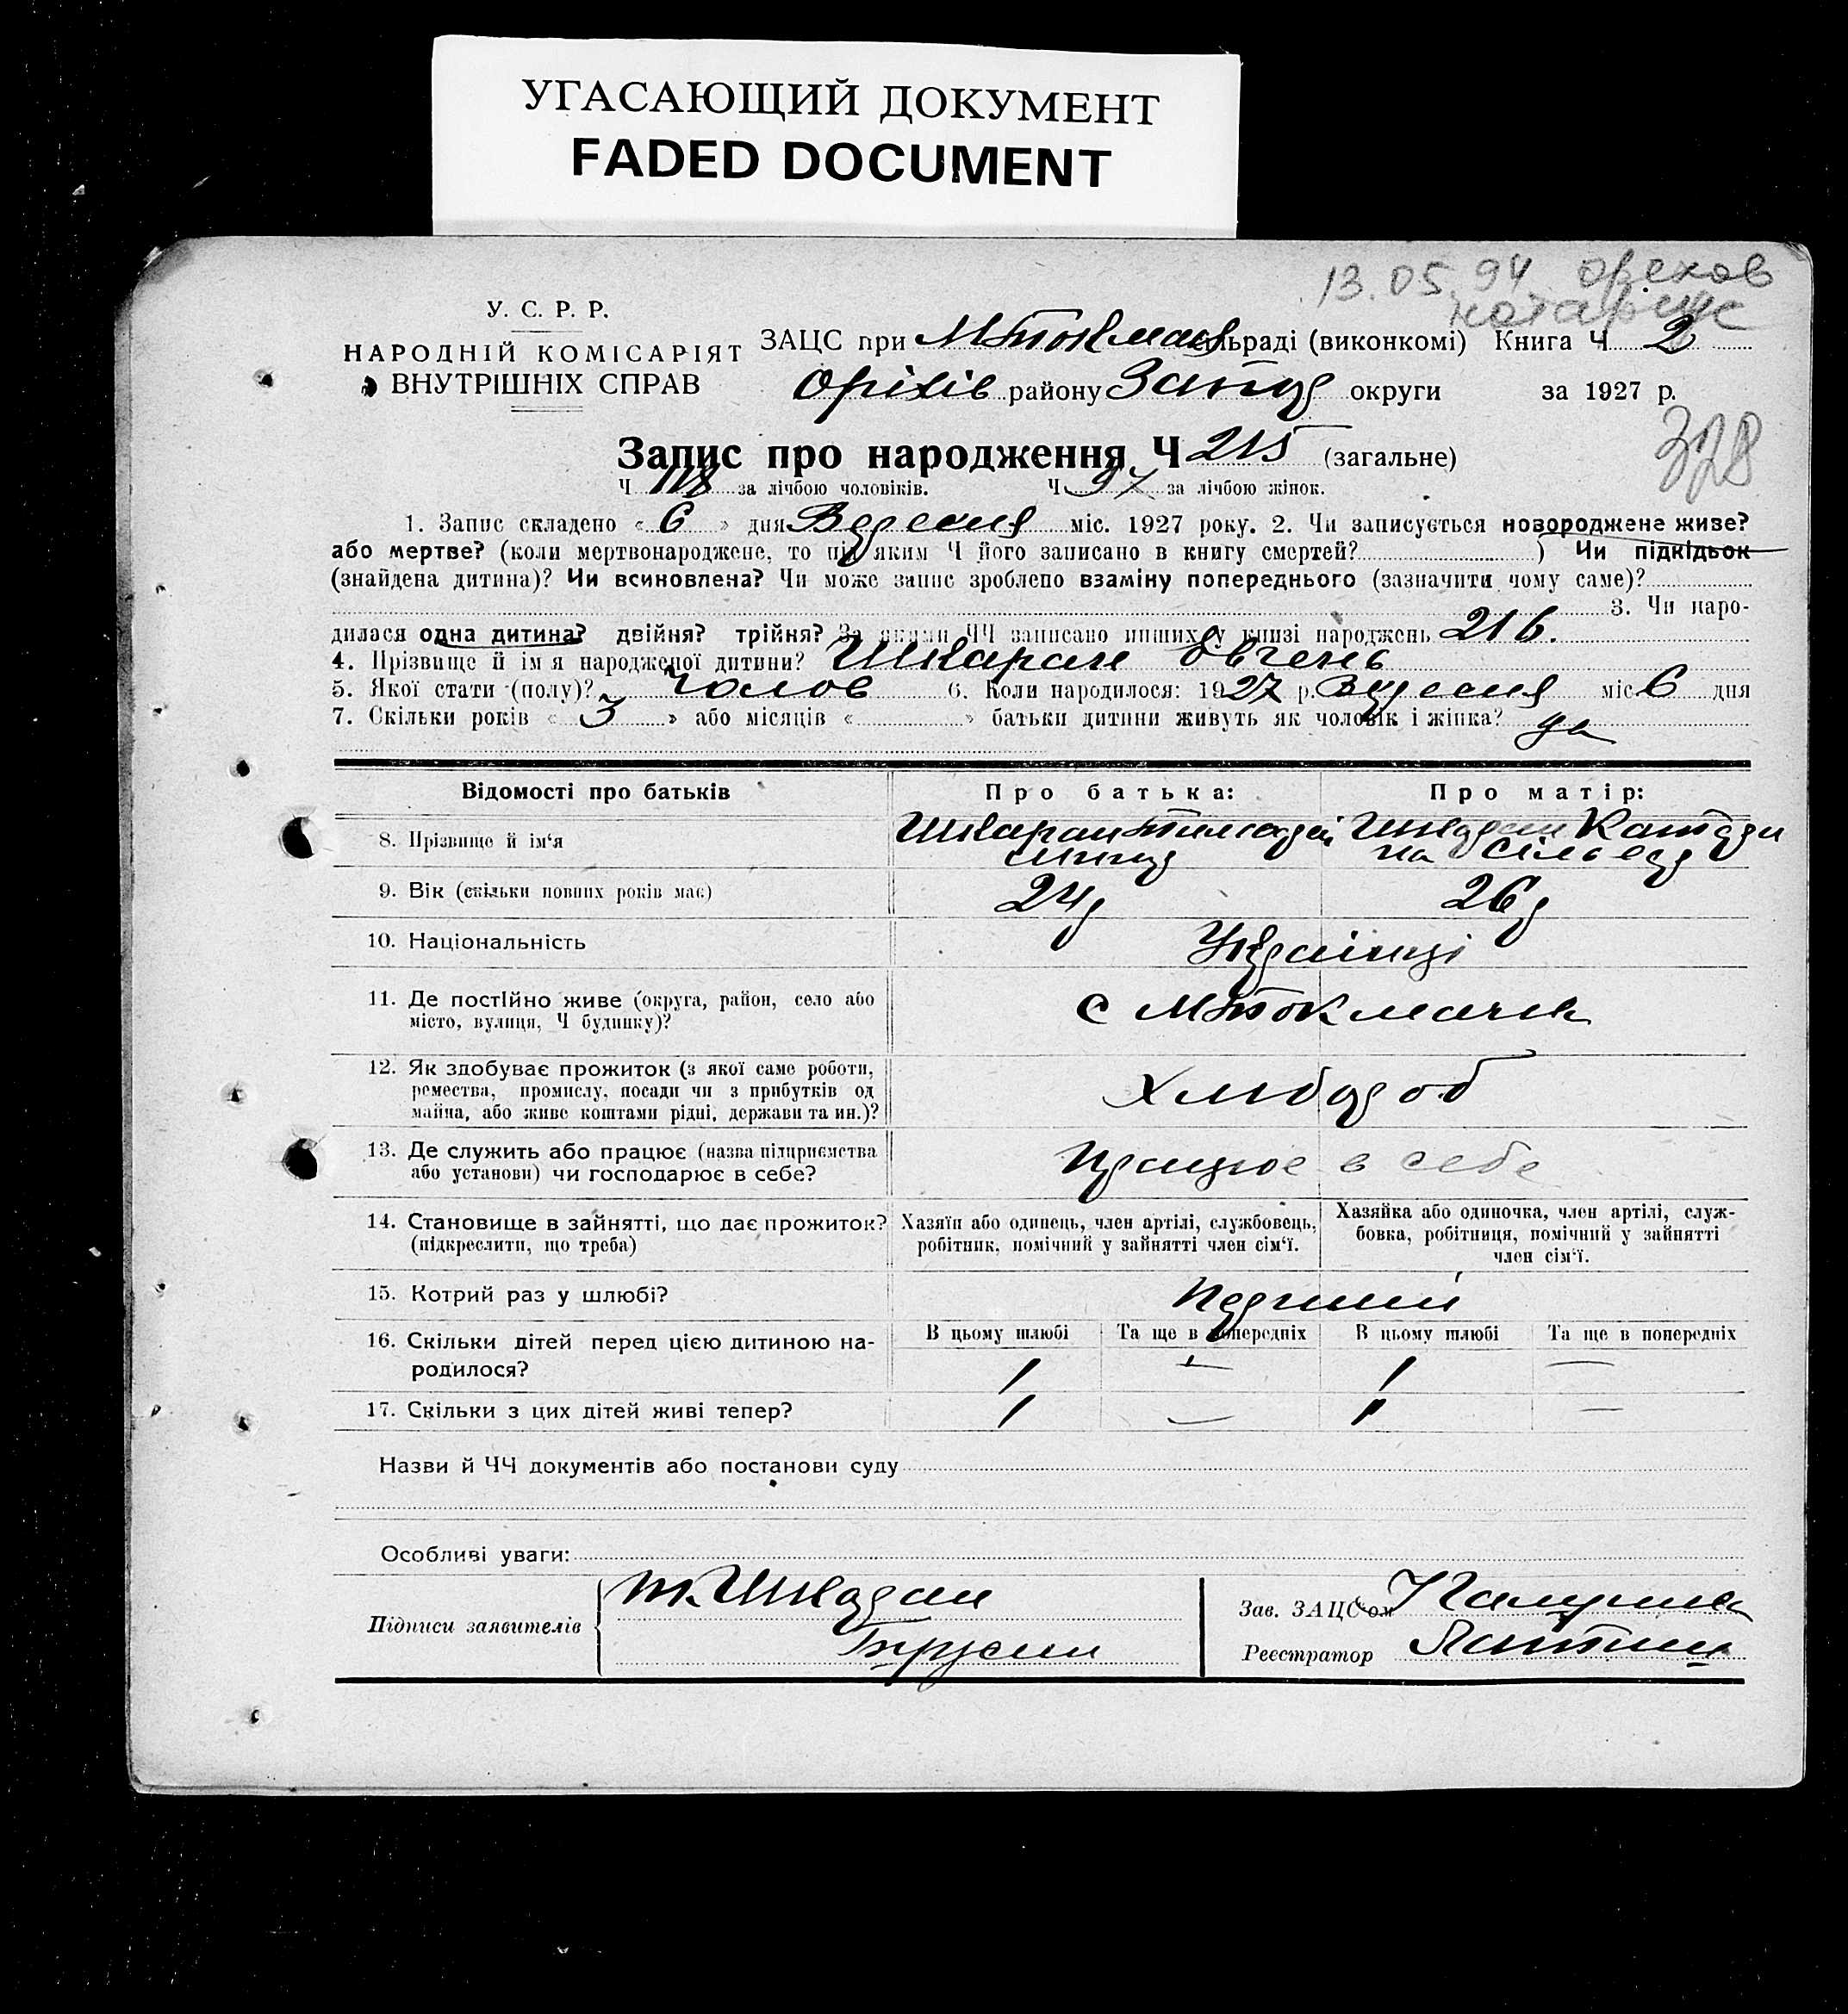 УГАСАЮЩИЙ ДОКУМЕНТ
FADED DOCUMENT
13.05.94 Орехов
нотариус
У. С. Р. Р.
НАРОДНІЙ КОМІСАРІЯТ
ВНУТРІШНІХ СПРАВ
ЗАЦС при МТокмач сільраді (виконкомі) Книга Ч 2
Оріхів району Запор округи за 1927 р.
328
Запис про народження Ч 215 (загальне)
Ч 118 за лічбою чоловіків. Ч 97 за лічбою жінок.
1. Запис складено « 6 » дня Вересня міс. 1927 року. 2. Чи записується новороджене живе?
або мертве? (коли мертвонароджене, то під яким Ч його записано в книгу смертей? ) Чи підкідьок
(знайдена дитина)? Чи всиновлена? Чи може запис зроблено взаміну попереднього (зазначити чому саме)?
3. Чи наро-
дилася одна дитина? двійня? трійня? За якими ЧЧ записано инших у книзі народжень 216.
4. Прізвище й ім'я народженої дитини? Шкаран Овгень
5. Якої стати (полу)? Чолов 6. Коли народилося: 1927 р. Вересня міс 6 дня
7. Скільки років « 3 » або місяців « » батьки дитини живуть як чоловік і жінка? да
Відомості про батьків Про батька: Про матір:
8. Прізвище й ім'я Шкаран Шкаран
9. Вік (скільки повних років має) 24р 26р
10. Національність Українці
11. Де постійно живе (округа, район, село або
місто, вулиця, Ч будинку)? с МТокмачк
12. Як здобуває прожиток (з якої саме роботи,
ремества, промислу, посади чи з прибутків од
майна, або живе коштами рідні, держави та ин.)? Хлібороб
13. Де служить або працює (назва підприємства
або установи) чи господарює в себе? працює в себе
14. Становище в зайнятті, що дає прожиток?
(підкреслити, що треба)
Хазяїн або одинець, член артілі, службовець,
робітник, помічний у зайнятті член сім'ї.
Хазяйка або одиночка, член артілі, служ-
бовка, робітниця, помічний у зайнятті
член сім'ї.
15. Котрий раз у шлюбі? Перший
16. Скільки дітей перед цією дитиною на-
родилося?
В цьому шлюбі Та ще в попередніх В цьому шлюбі Та ще в попередніх
1 — 1 —
17. Скільки з цих дітей живі тепер? 1 — 1 —
Назви й ЧЧ документів або постанови суду
Особливі уваги:
Підписи заявителів Т. Шкаран
Зав. ЗАЦС'ом
Реєстратор